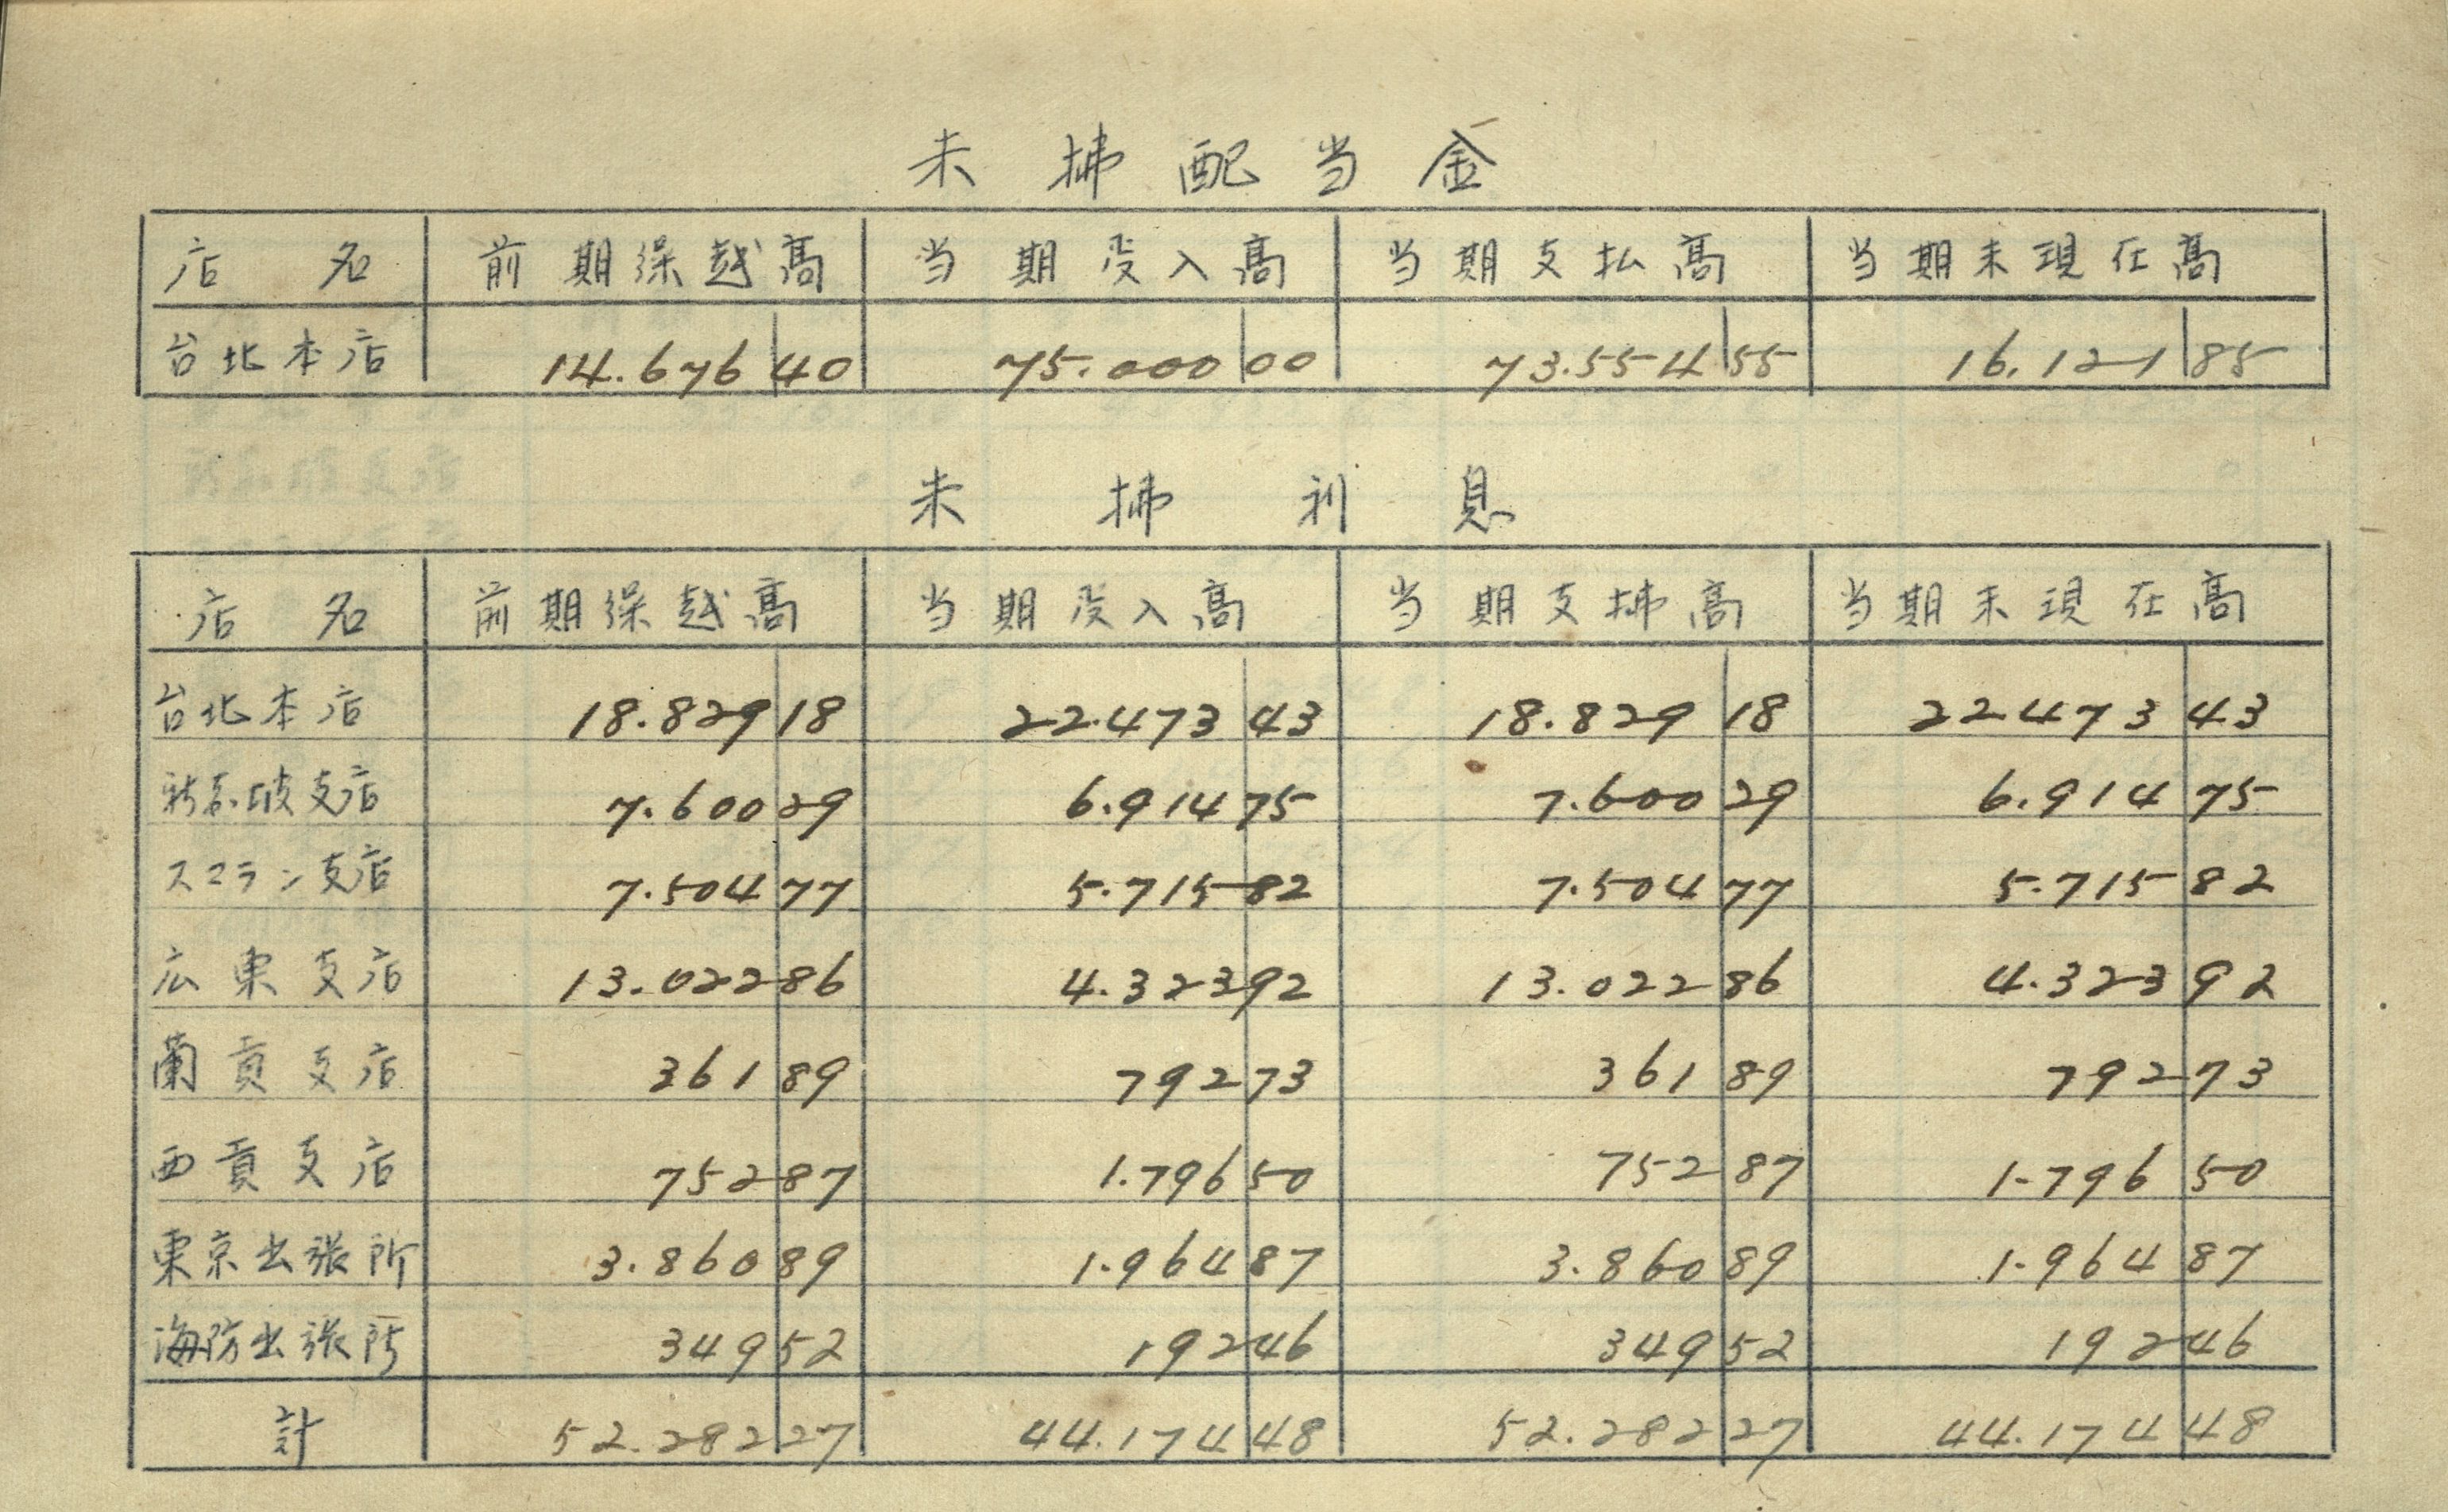 未拂配当金
店名 前期繰越高 当期受入高 当期支払高 当期末現在高
台北本店 14.676 40 75.000 00 73.554 55 16.121 85
未拂利息
店名 前期繰越高 当期受入高 当期支拂高 当期末現在高
台北本店 18.829 18 22.473 43 18.829 18 22.473 43
新嘉坡支店 7.600 29 6.914 75 7.600 29 6.914 75
スマラン支店 7.504 77 5.715 82 7.504 77 5.715 82
広東支店 13.022 86 4.323 92 13.022 86 4.323 92
蘭貢支店 361 89 792 73 361 89 792 73
西貢支店 752 87 1.796 50 752 87 1.796 50
東京出張所 3.860 89 1.964 87 3.860 89 1.964 87
海防出張所 349 52 192 46 349 52 192 46
計 52.282 27 44.174 48 52.282 27 44.174 48